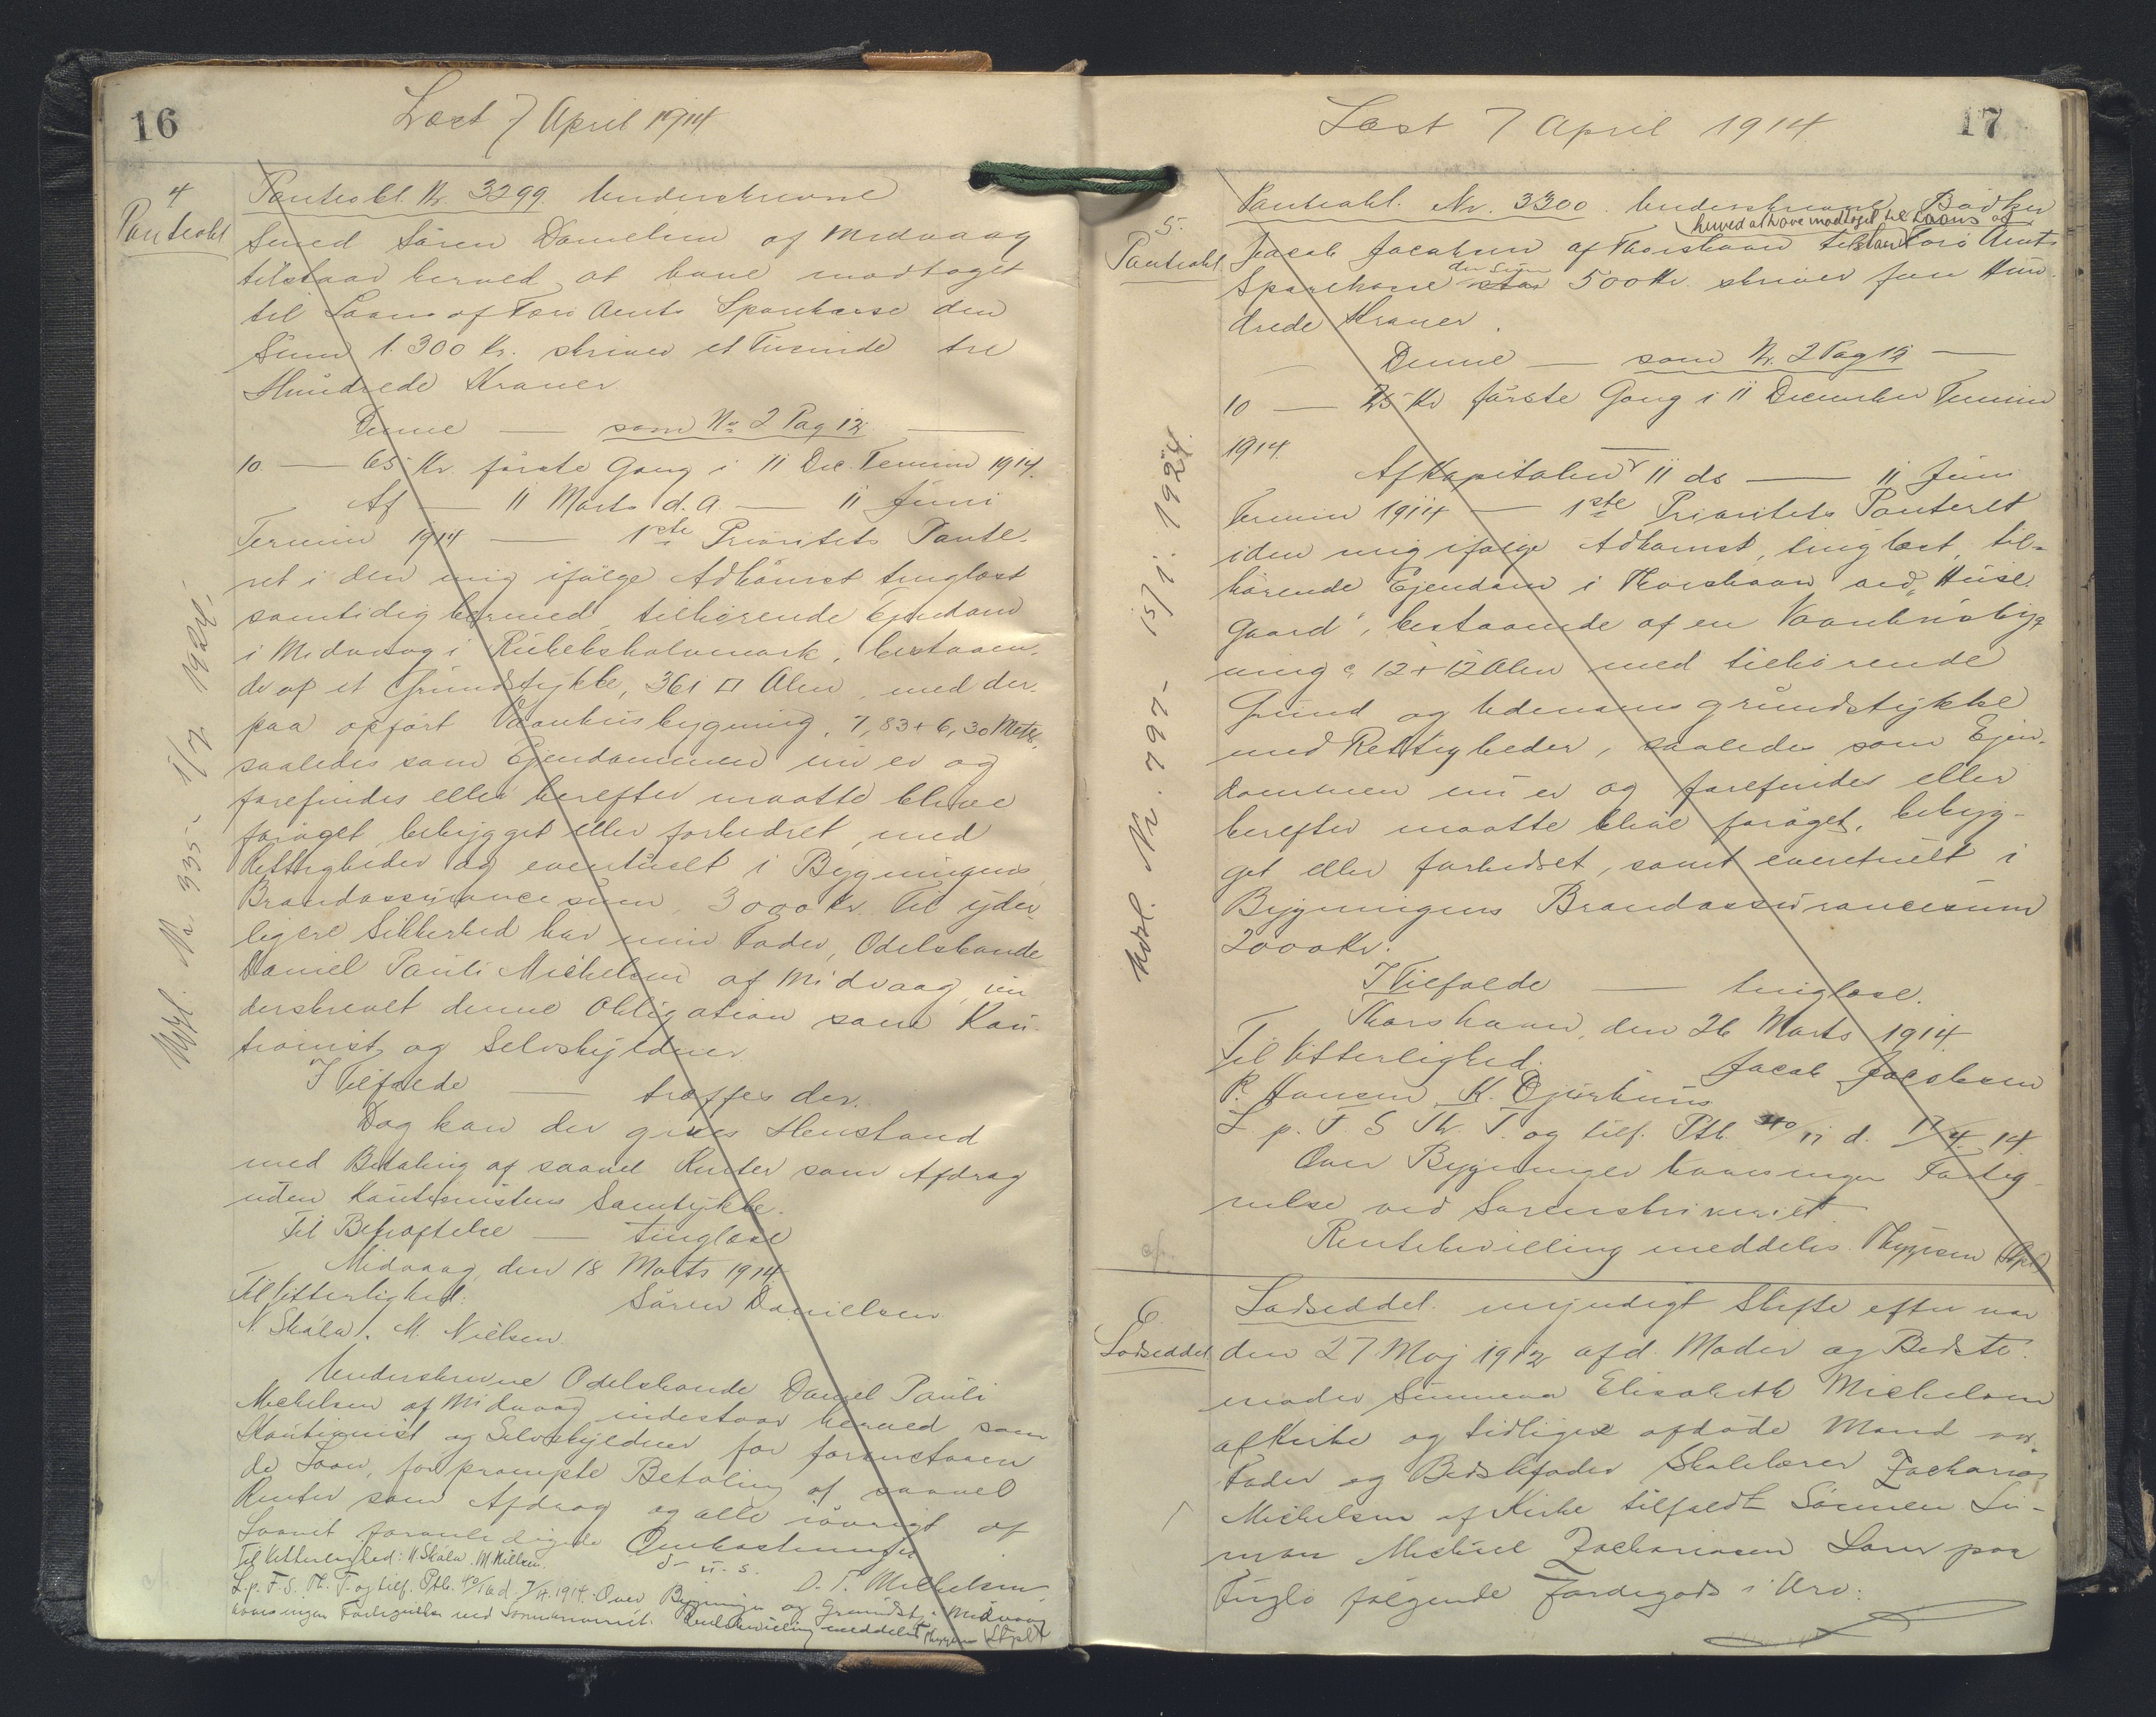 16
Læst 7 April 1914
4
Panteobl
Panteobl. Nr. 3299. Underskrevne
Smed Sören Danielsen af Midvaag
tilstaar herved at have modtaget
til Laans af Færö Amts Sparekasse den
Sum 1.300 Kr. skriver et Tusinde tre
Hundrede Kroner.
Denne — som No 2 Pag 12 —
10 — 65 Kr. förste Gang i 11 Dec. Termin 1914.
Af — 11 Marts d.A. — 11 Juni
Termin 1914 — 1ste Prioritets Pante-
ret i den mig ifölge Adkomst tinglæst
samtidig hermed, tilhörende Ejendom
i Midvaag i , bestaaen-
de af et Grundstykke, 361 □ Alen, med der-
paa opfört Vaanhusbygning, 7,83 + 6,30 Meter,
saaledes som Ejendommen nu er og
forefindes eller herefter maatte blive
foröget, bebygget eller forbedret, med
Rettigheder og eventuelt i Bygningens
Brandassurancesum, 3000 Kr. Til yder
ligere Sikkerhed har min Fader, Odelsbonde
Daniel Pauli Michelsen af Midvaag, un
derskrevet denne Obligation som Kau-
tionist og Selvskyldner.
I Tilfælde — træffes der.
Dog kan der gives Henstand
med Betaling af saavel Renter som Afdrag
uden Kautionistens Samtykke.
Til Bekræftelse — tinglæse
Midvaag, den 18 Marts 1914.
Til Vitterlighed. Sören Danielsen
N. Skála. M. Nielsen.
Underskrevne Odelsbonde Daniel Pauli
Michelsen af Midvaag indestaar herved som
Kautionist og Selvskyldner for foranstaaen
de Laan, for prompte Betaling af saavel
Renter som Afdrag og alle iövrigt af
Laanet foranledigede Omkostninger
d. u. s.
Til Vitterlighed: N. Skála. M. Nielsen. D. P. Michelsen
L. p. F. S. Th. T. og tilf. Ptb. 40/16 d. 7/4 1914. Over Bygninger og Grundst. i Midvaag
haves ingen Fortegnelse ved Sorenskriveriet. Rentebevilling meddelt Thygesen (Stpl)
Udsl. Nr. 335 - 1/7 1924.
17
Læst 7 April 1914.
5.
Panteobl.
Panteobl. Nr. 3300. Underskrevne Bødker
herved at have modtaget til Laans af
Jacob Jacobsen af Thorshavn tilstaar Færö Amts
den Sum
Sparekasse 500 Kr. skriver fem Hun-
drede Kroner.
Denne — som Nr. 2 Pag 12 —
10 — 25 Kr förste Gang i 11 December Termin
1914.
Af Kapitalen 11 ds — 11 Juni
Termin 1914 — 1ste Prioritets Panteret
i den mig ifølge Adkomst, tinglæst, til-
hörende Ejendom i Thorshavn ved „Húse
gaard“, bestaaende af en Vaanhusbyg
ning a 12 + 12 Alen med tilhörende
Grund og Udenomsgrundstykke
med Rettigheder, saaledes som Ejen-
dommen nu er og forefindes eller
herefter maatte blive foröget, bebyg-
get eller forbedret, samt eventuelt i
Bygningens Brandassurancesum
2000 Kr.
I Tilfælde — tinglæse.
Thorshavn, den 26 Marts 1914
Til Vitterlighed. Jacob Jacobsen
P. Hansen K. Djurhuus
L. p. F. S Th. T. og tilf. Ptb. 40/17 d. 17/4 14
Over Bygninger haves ingen Forteg-
nelse ved Sorenskriveriet.
Rentebevilling meddeles. Thygesen (Stpl)
Udsl. Nr. 797 - 15/1. 1924.
6.
Lodseddel
Lodseddel. myndigt Skifte efter vor
den 27 Maj 1912 afd. Moder og Bedste-
moder Sunneva Elisabeth Michelsen
af Kirke og tidligere afdöde Mand vor
Fader og Bedstefader Skolelærer Zacharias
Michelsen af Kirke tilfaldt Sönnen Si-
mon Michael Zachariasen paa
Fuglö fölgende Jordegods i Arv: